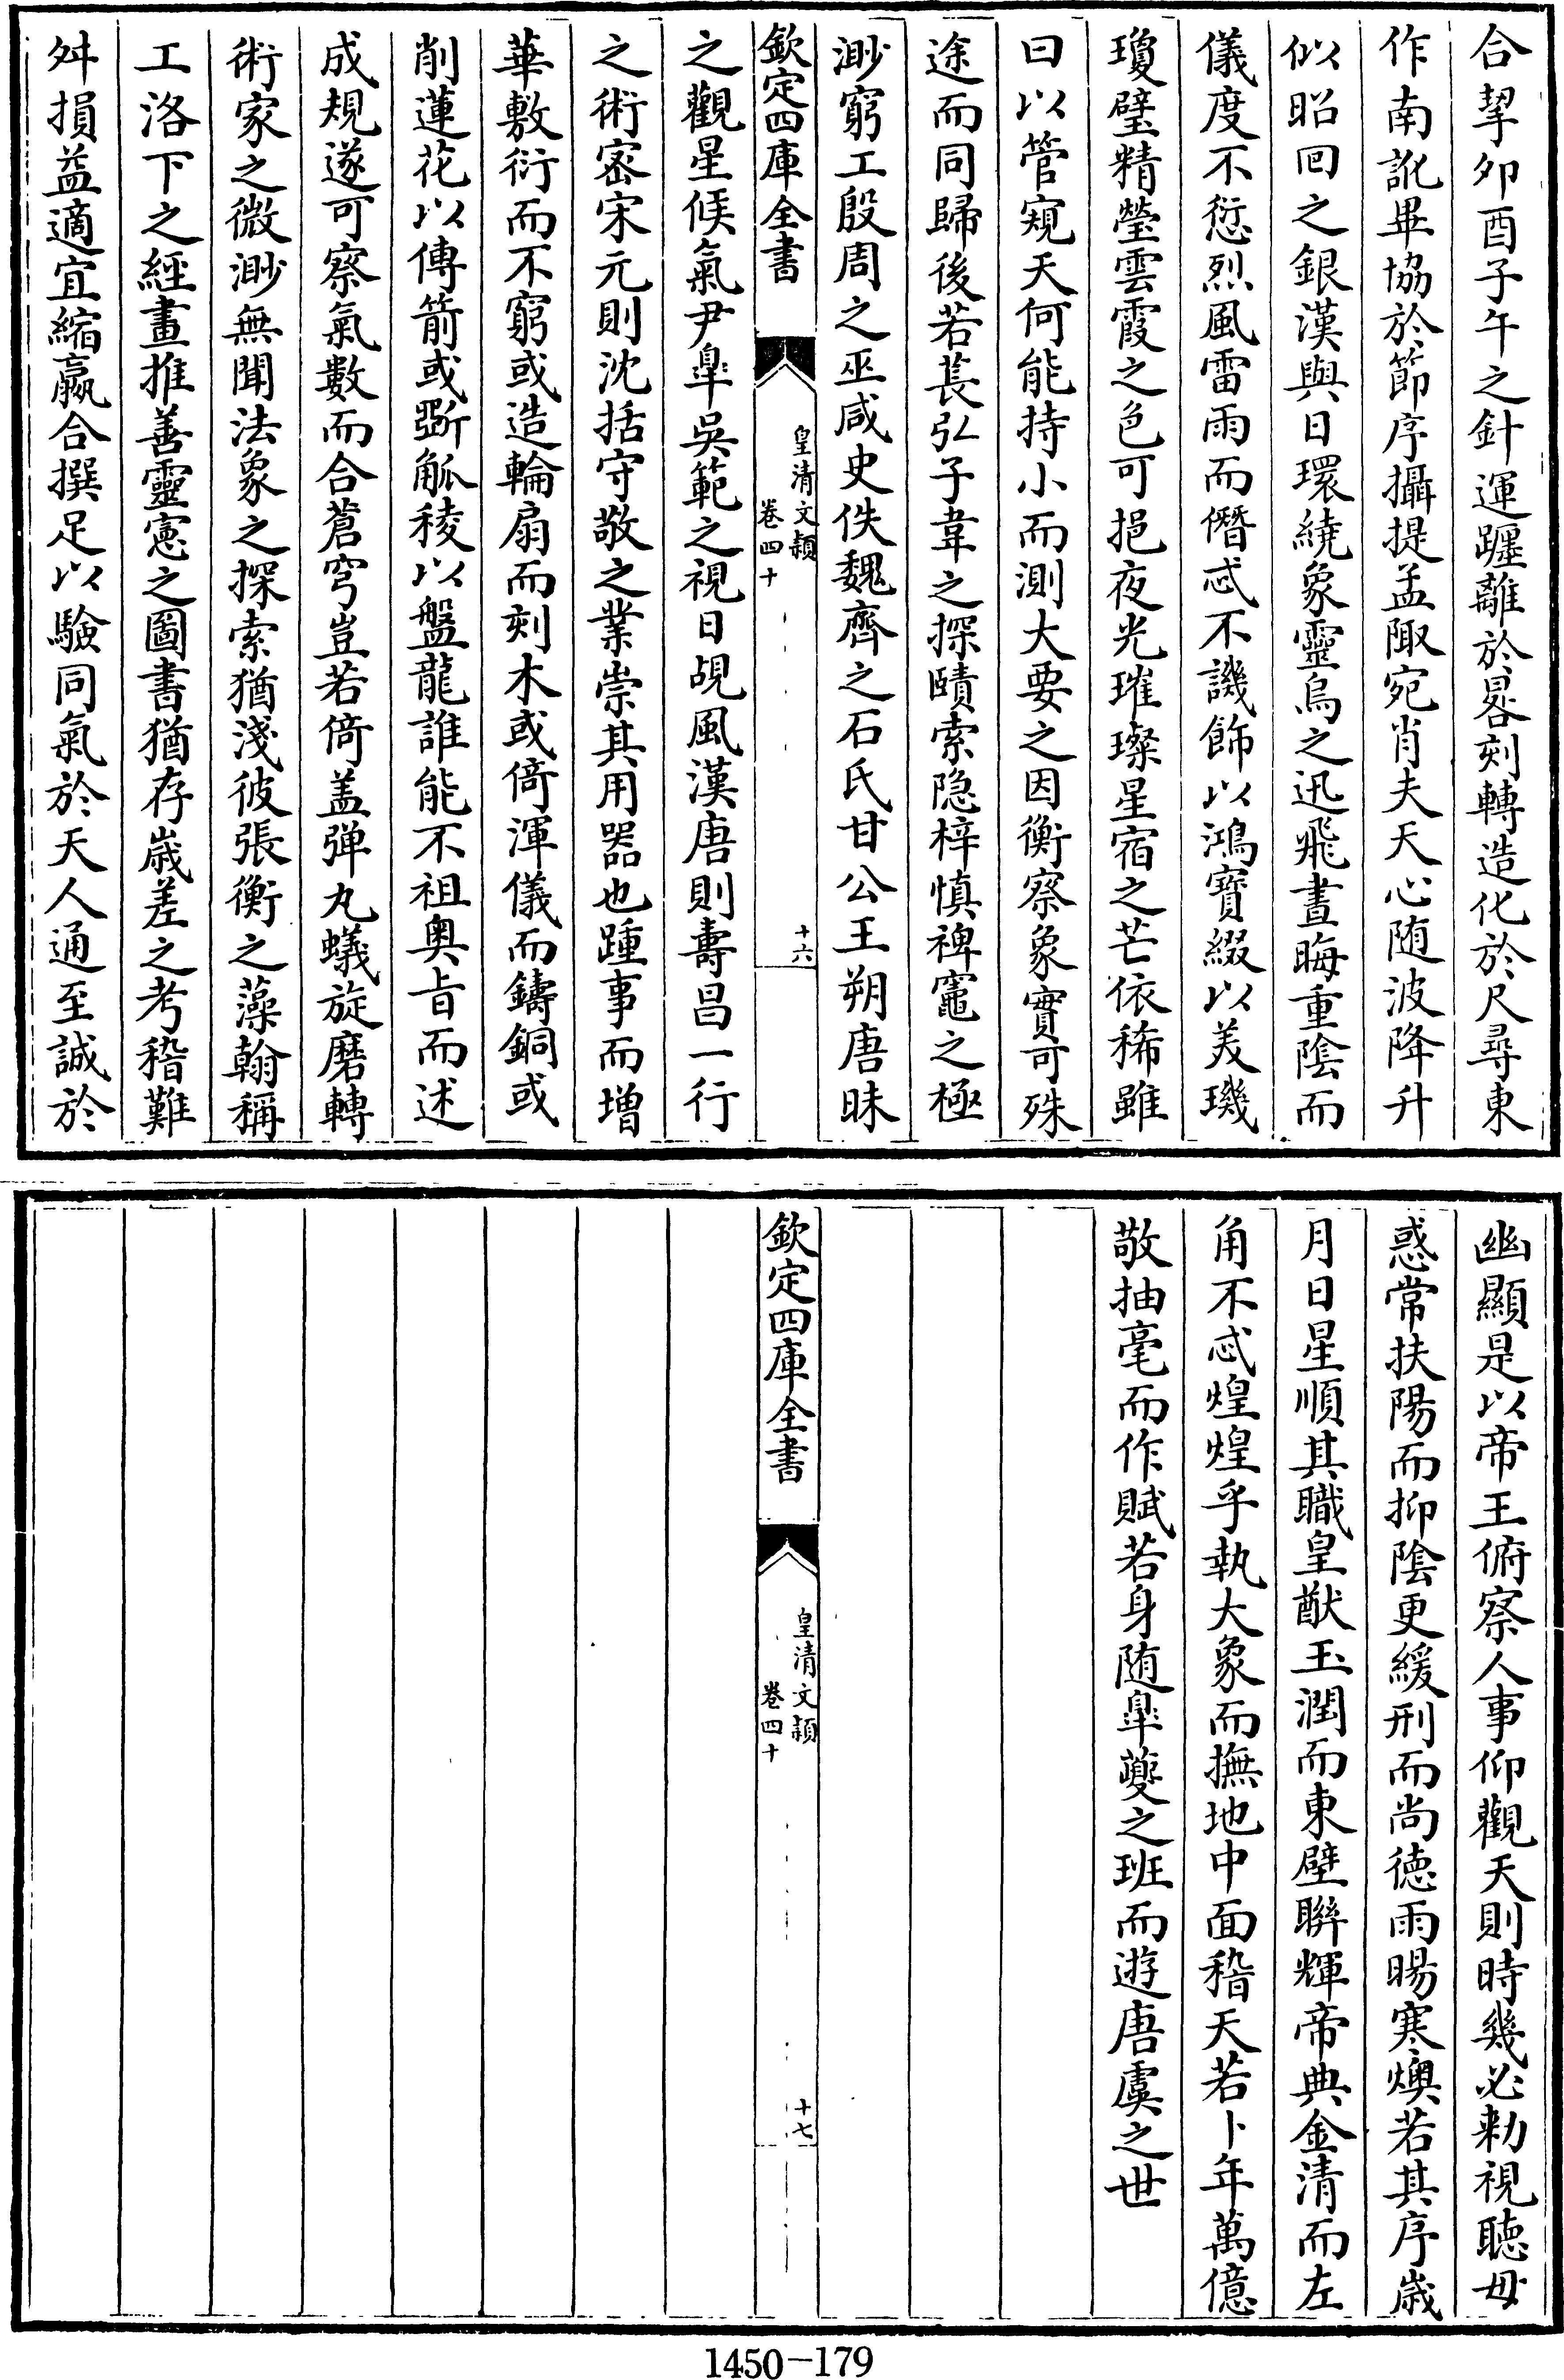 合挈夘酉子午之針運躔離於晷刻轉造化於尺尋東
作南訛畢協於節序攝提孟陬宛肖夫天心随波降升
似昭回之銀漢與日環繞象靈烏之迅飛晝晦重陰而
儀度不愆烈風雷雨而僭忒不譏飾以鴻寶綴以美璣
瓊璧精瑩雲霞之色可挹夜光璀璨星宿之芒依稀雖
曰以管窺天何能持小而測大要之因衡察象實可殊
途而同歸後若萇弘子韋之探賾索隐梓慎裨竈之極
渺窮工殷周之巫咸史佚魏齊之石氏甘公王朔唐昧
欽定四庫全書
皇清文穎
卷四十
十六
之觀星候氣尹臯吳範之視日覘風漢唐則壽昌一行
之術密宋元則沈括守敬之業崇其用器也踵事而增
華敷衍而不窮或造輪扇而刻木或倚渾儀而鑄銅或
削蓮花以傳箭或斲觚稜以盤龍誰能不祖奥旨而述
成規遂可察氣數而合蒼穹豈若倚盖彈丸蟻旋磨轉
術家之微渺無聞法象之探索猶淺彼張衡之藻翰稱
工洛下之經畫推善靈憲之圖書猶存嵗差之考稽難
舛損益適宜縮嬴合撰足以驗同氣於天人通至誠於
幽顯是以帝王俯察人事仰觀天則時幾必勑視聽毋
惑常扶陽而抑陰更緩刑而尚德雨暘寒燠若其序嵗
月日星順其職皇猷玉潤而東壁聯輝帝典金清而左
角不忒煌煌乎執大象而撫地中面稽天若卜年萬億
敬抽毫而作賦若身随臯夔之班而遊唐虞之世
欽定四庫全書
皇清文穎
卷四十
十七
1450-179